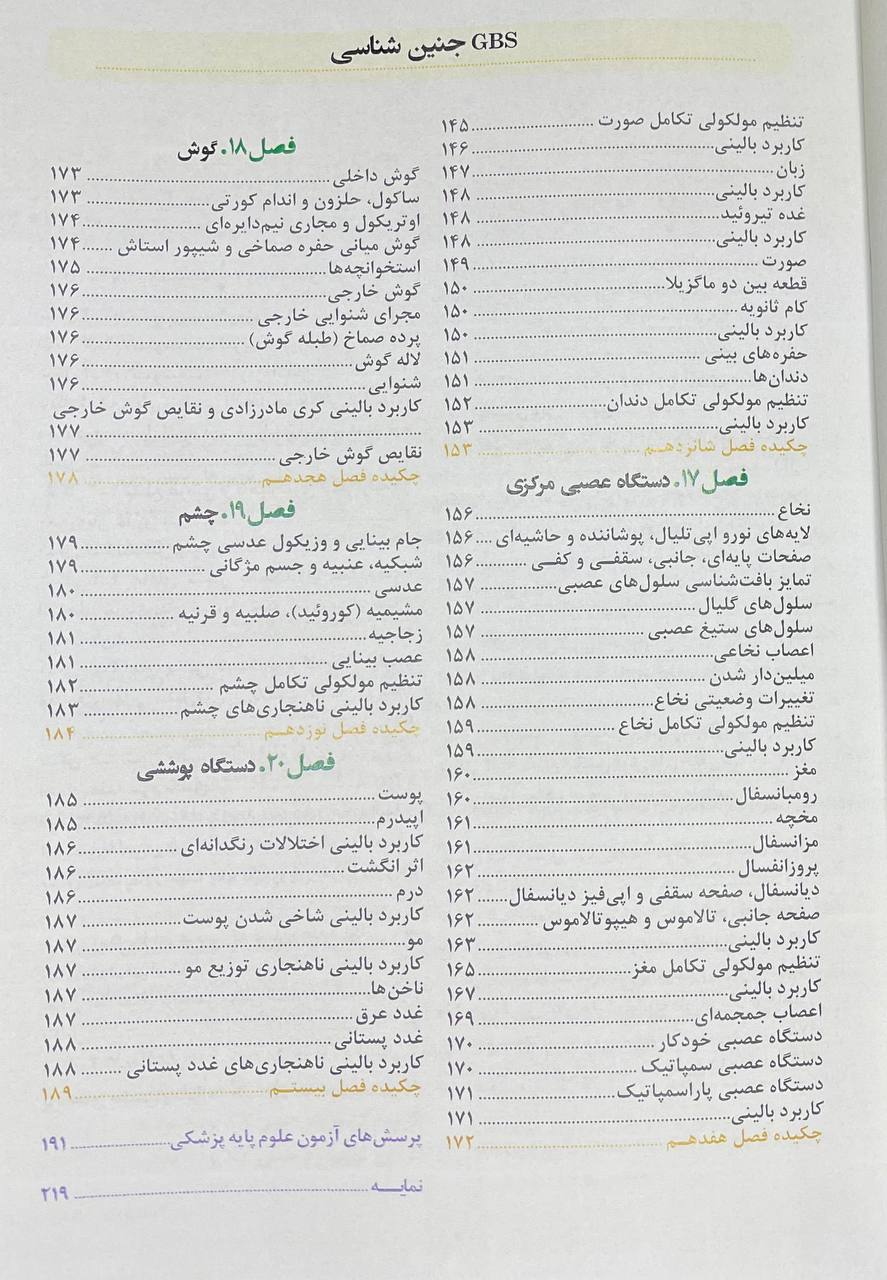 GBS جنین شناسی
تنظیم مولکولی تکامل صورت ........ ۱۴۵
کاربرد بالینی ........ ۱۴۶
زبان ........ ۱۴۷
کاربرد بالینی ........ ۱۴۸
غده تیروئید ........ ۱۴۸
کاربرد بالینی ........ ۱۴۸
صورت ........ ۱۴۹
قطعه بین دو ماگزیلا ........ ۱۵۰
کام ثانویه ........ ۱۵۰
کاربرد بالینی ........ ۱۵۰
حفره‌های بینی ........ ۱۵۱
دندان‌ها ........ ۱۵۱
تنظیم مولکولی تکامل دندان ........ ۱۵۲
کاربرد بالینی ........ ۱۵۳
چکیده فصل شانزدهـم ........ ۱۵۳
فصل ۱۷. دستگاه عصبی مرکزی
نخاع ........ ۱۵۶
لایه‌های نورو اپی‌تلیال، پوشاننده و حاشیه‌ای .... ۱۵۶
صفحات پایه‌ای، جانبی، سقفـی و کفـی ........ ۱۵۶
تمایز بافت‌شناسی سلول‌های عصبی ........ ۱۵۷
سلول‌های گلیال ........ ۱۵۷
سلول‌های ستیغ عصبی ........ ۱۵۷
اعصاب نخاعی ........ ۱۵۸
میلین‌دار شدن ........ ۱۵۸
تغییرات وضعیتی نخاع ........ ۱۵۸
تنظیم مولکولی تکامل نخاع ........ ۱۵۹
کاربرد بالینی ........ ۱۵۹
مغز ........ ۱۶۰
رومبانسفال ........ ۱۶۰
مخچه ........ ۱۶۱
مزانسفال ........ ۱۶۱
پروزانفسال ........ ۱۶۲
دیانسفال، صفحه سقفی و اپی‌فیز دیانسفال ...... ۱۶۲
صفحه جانبی، تالاموس و هیپوتالاموس ........ ۱۶۲
کاربرد بالینی ........ ۱۶۳
تنظیم مولکولی تکامل مغز ........ ۱۶۵
کاربرد بالینی ........ ۱۶۷
اعصاب جمجمه‌ای ........ ۱۶۹
دستگاه عصبی خودکار ........ ۱۷۰
دستگاه عصبی سمپاتیک ........ ۱۷۰
دستگاه عصبی پاراسمپاتیک ........ ۱۷۱
کاربرد بالینی ........ ۱۷۱
چکیده فصل هفدهـم ........ ۱۷۲
فصل ۱۸. گوش
گوش داخلی ........ ۱۷۳
ساکول، حلزون و اندام کورتی ........ ۱۷۳
اوتریکول و مجاری نیم‌دایره‌ای ........ ۱۷۴
گوش میانی حفره صماخی و شیپور استاش ...... ۱۷۴
استخوانچه‌ها ........ ۱۷۵
گوش خارجی ........ ۱۷۶
مجرای شنوایی خارجی ........ ۱۷۶
پرده صماخ (طبله گوش) ........ ۱۷۶
لاله گوش ........ ۱۷۶
شنوایی ........ ۱۷۶
کاربرد بالینی کری مادرزادی و نقایص گوش خارجی
........ ۱۷۷
نقایص گوش خارجی ........ ۱۷۷
چکیده فصل هجدهـم ........ ۱۷۸
فصل ۱۹. چشم
جام بینایی و وزیکول عدسی چشم ........ ۱۷۹
شبکیه، عنبیه و جسم مژگانی ........ ۱۷۹
عدسی ........ ۱۸۰
مشیمیه (کوروئید)، صلبیه و قرنیه ........ ۱۸۰
زجاجیه ........ ۱۸۱
عصب بینایی ........ ۱۸۱
تنظیم مولکولی تکامل چشم ........ ۱۸۲
کاربرد بالینی ناهنجاری‌های چشم ........ ۱۸۳
چکیده فصل نوزدهـم ........ ۱۸۴
فصل ۲۰. دستگاه پوششی
پوست ........ ۱۸۵
اپیدرم ........ ۱۸۵
کاربرد بالینی اختلالات رنگدانه‌ای ........ ۱۸۶
اثر انگشت ........ ۱۸۶
درم ........ ۱۸۶
کاربرد بالینی شاخی شدن پوست ........ ۱۸۷
مو ........ ۱۸۷
کاربرد بالینی ناهنجاری توزیع مو ........ ۱۸۷
ناخن‌ها ........ ۱۸۷
غدد عرق ........ ۱۸۷
غدد پستانی ........ ۱۸۸
کاربرد بالینی ناهنجاری‌های غدد پستانی ........ ۱۸۸
چکیده فصل بیستـم ........ ۱۸۹
پرسش‌های آزمون علوم پایه پزشکی ........ ۱۹۱
نمایـــه ........ ۲۱۹